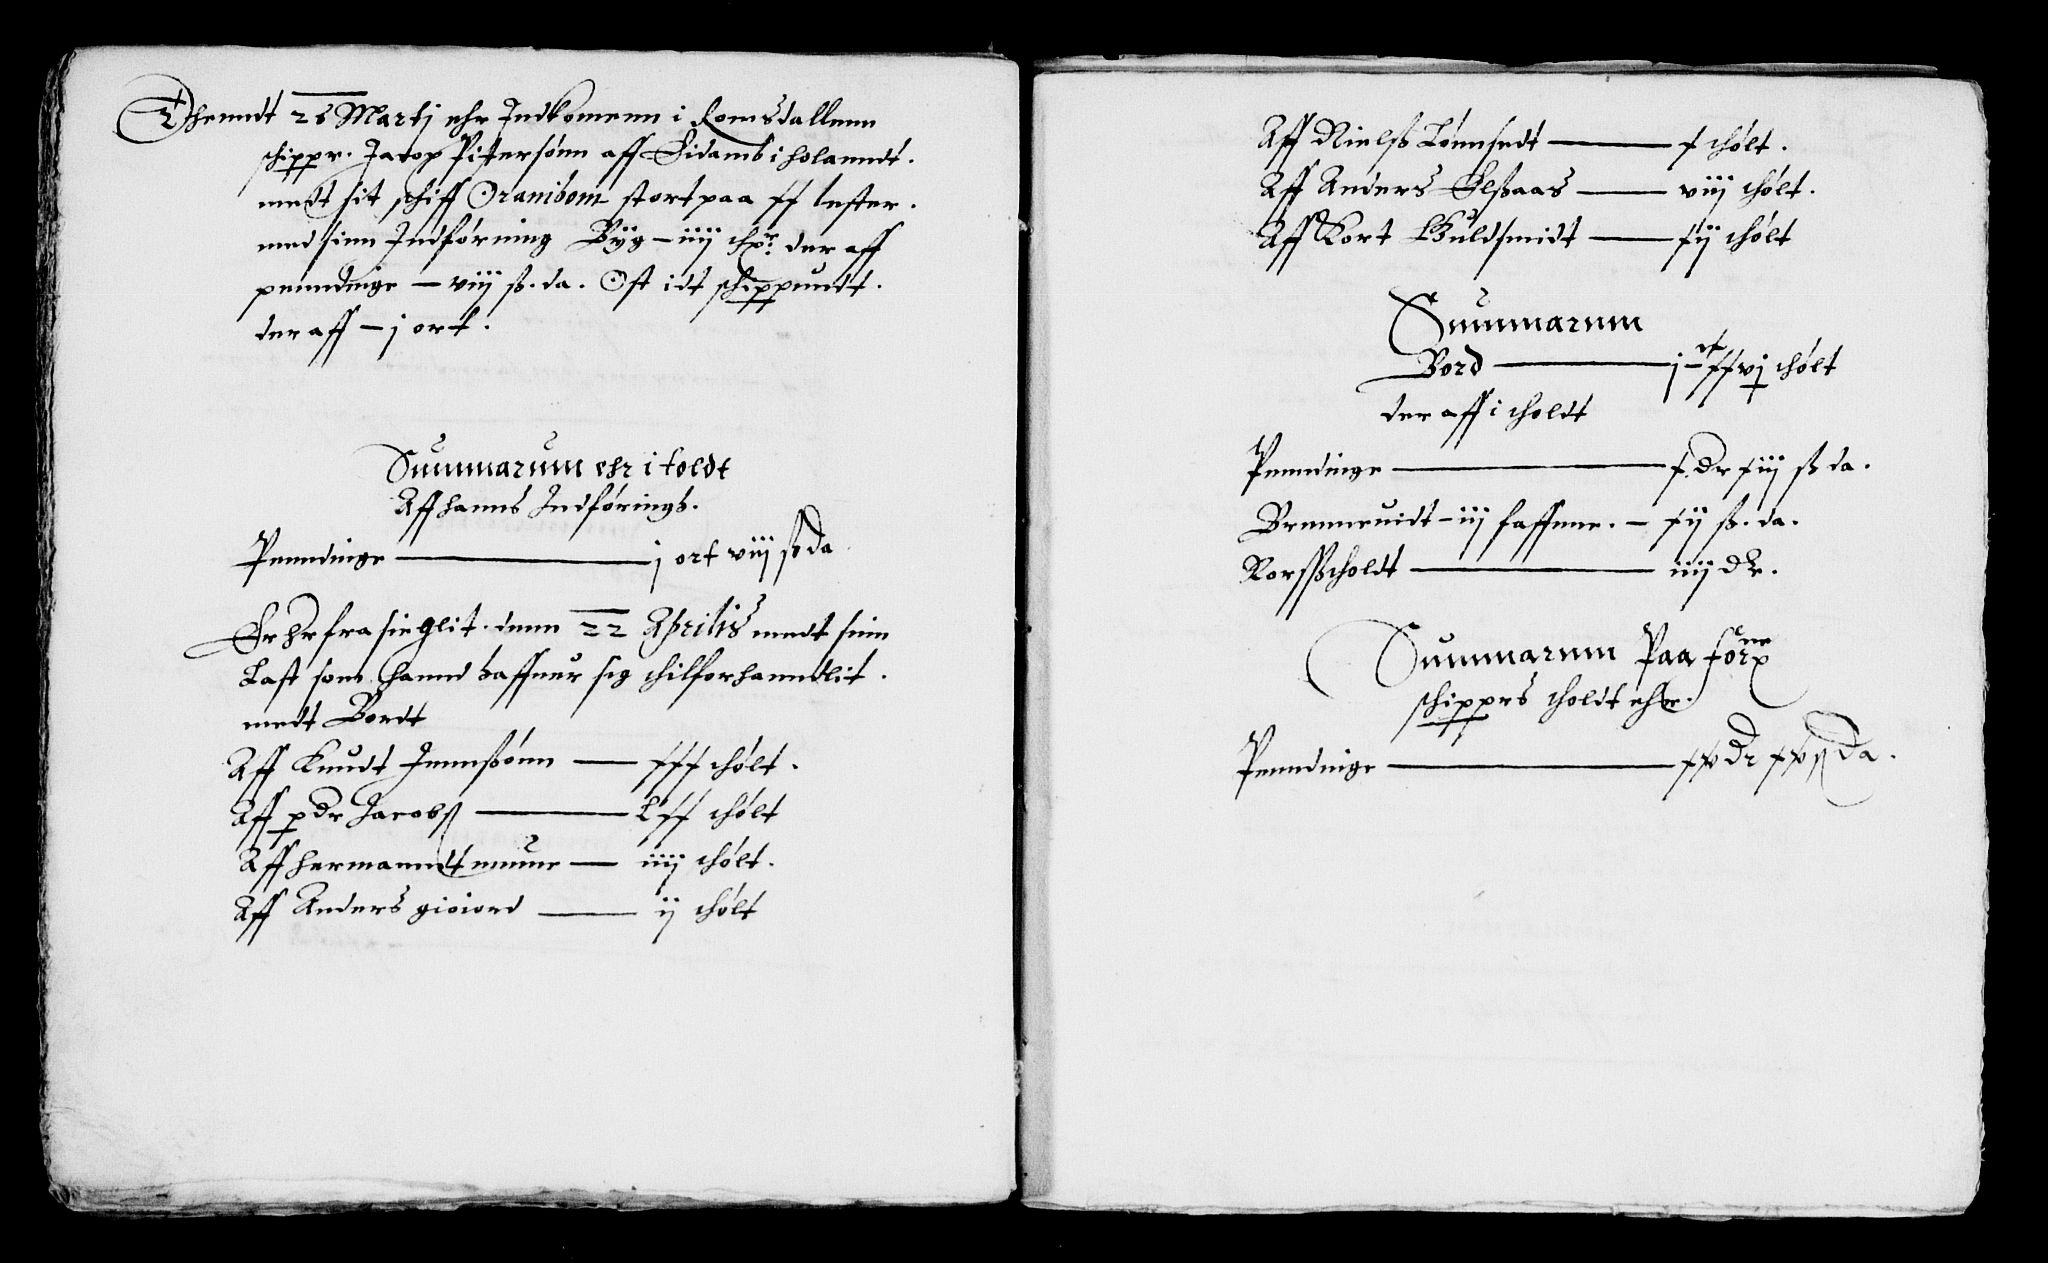 Thenndt 26 Martj ehr Indkomenn i Romsdallenn
schippr. Jacop Pittersønn aff Eidamb i holanndt.
medt sit schiff Oranibom stort paa xx lester.
med sinn Indførning Byg – iiij chpr. der aff
penndinge – viij sk. da. Ost idt schippundt.
der aff – j ort.
Summarum ehr i toldt
Aff hanns Indførings.
Penndinge — j ort viij sk da
Er hr fra sieglit. denn 22 Aprilis medt sinn
Last som hannd haffuer sig thilforhanndlit.
medt Bordt
Aff Knudt Jennssønn — xxx thølt.
Aff pdr Jacobs — Lxx thølt
Aff hermanndt muur — iiij thølt.
Aff Anders gioiord — ij thølt
Aff Nielss Lønnsedt — x thølt.
Aff Anders Elssaas — viij thølt.
Aff Kort Guldsmidt — xij thølt
Summarum
Bord — j c xxvj thølt
der aff i tholdt
Penndinge — x dr xiij sk da.
Brenneuidt – iij faffnne. – xij sk. da.
Korssstholdt — iiij dr.
Summarum Paa forne
schippers tholdt ehr.
Penndinge — dr sk da.